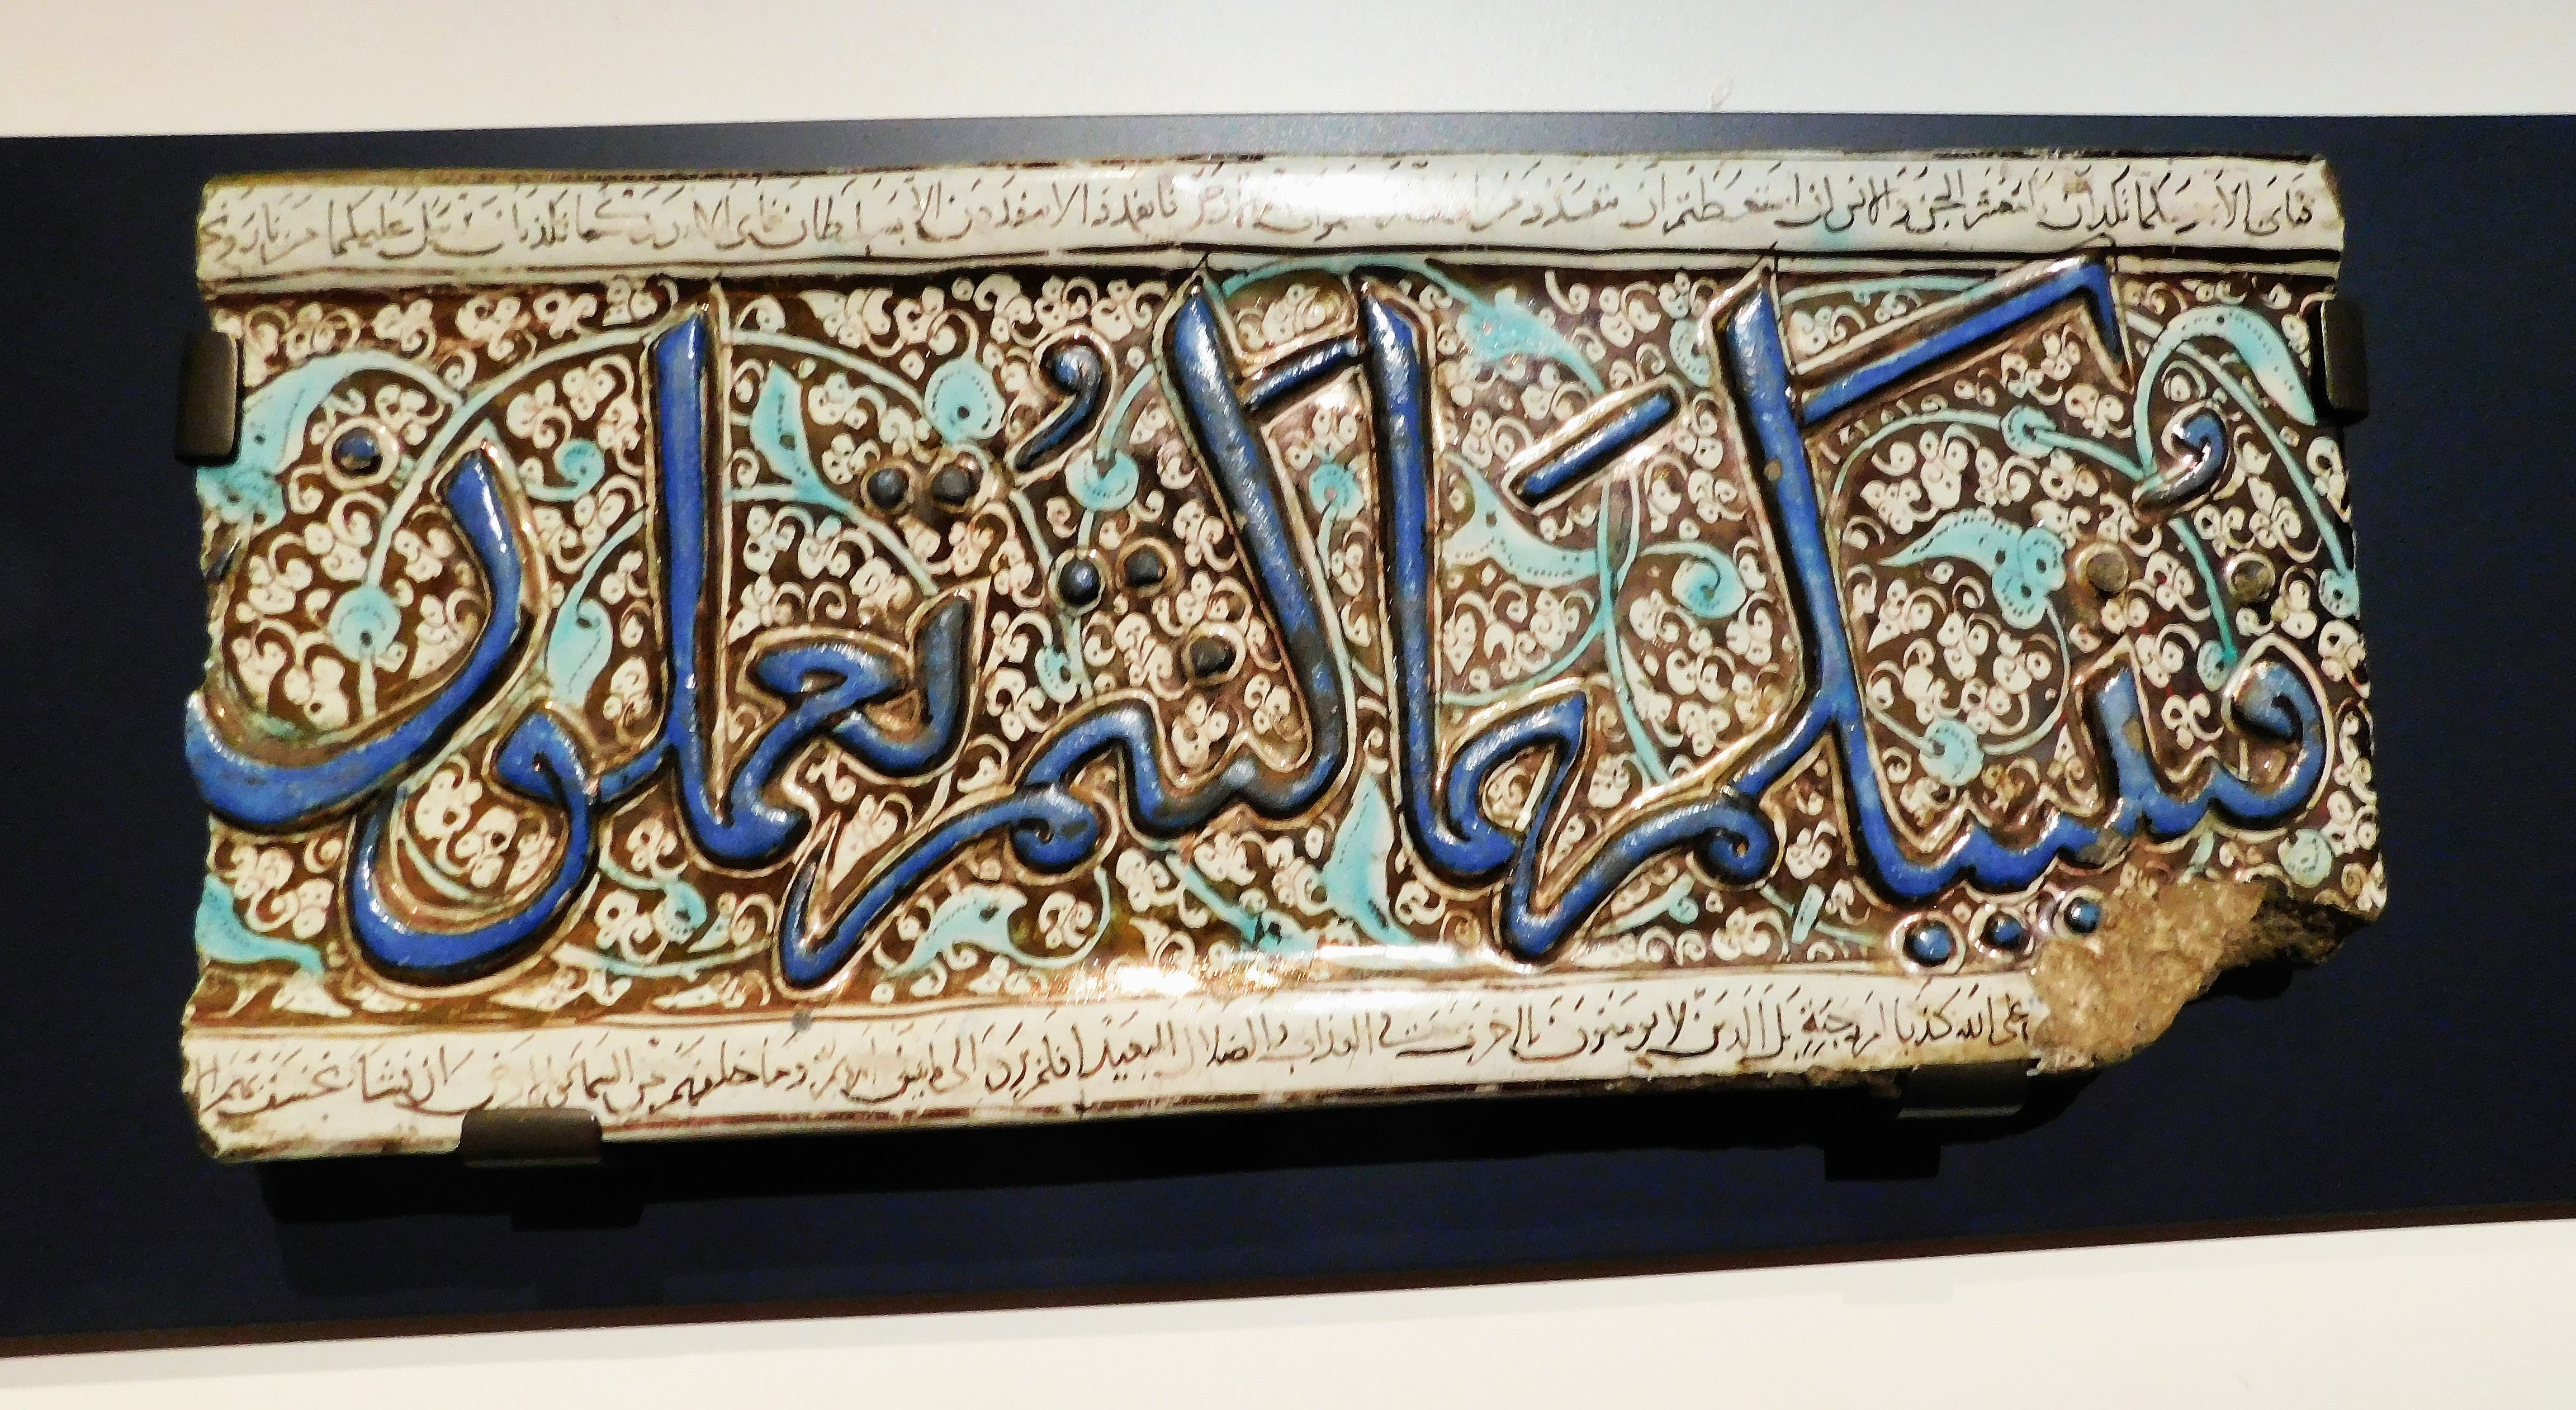 فباي الا ربكما تكذبان يا معشر الجن والانس ان استطعتم ان تنفذوا من والارض فانفذوا لا تنفذون الا بسلطان فباي الا ربكما تكذبان يرسل عليكما من نار ونح
فينبيكم بما كنتم تعملون
على الله كذبا ام به جنة بل الذين لا يومنون بالاخرة في العذاب والضلال البعيد افلم يروا الى ما بين ايديهم وما خلفهم من السما والارض ان نشا نخسف بهم الا